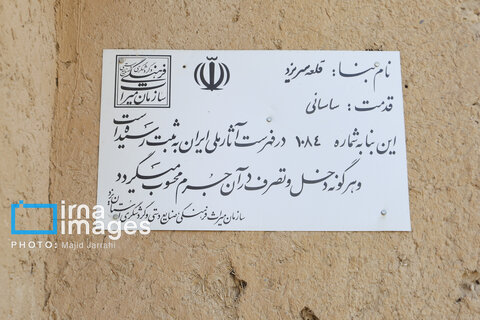 نام بنا: قلعه سریزد
قدمت: ساسانی
این بنا به شماره ۱۰۸۴ در فهرست آثار ملی ایران به ثبت رسیده است
و هرگونه دخل و تصرف در آن جرم محسوب میگردد
سازمان میراث فرهنگی صنایع دستی و گردشگری استان یزد
irna
images
PHOTO: Majid Jarrahi